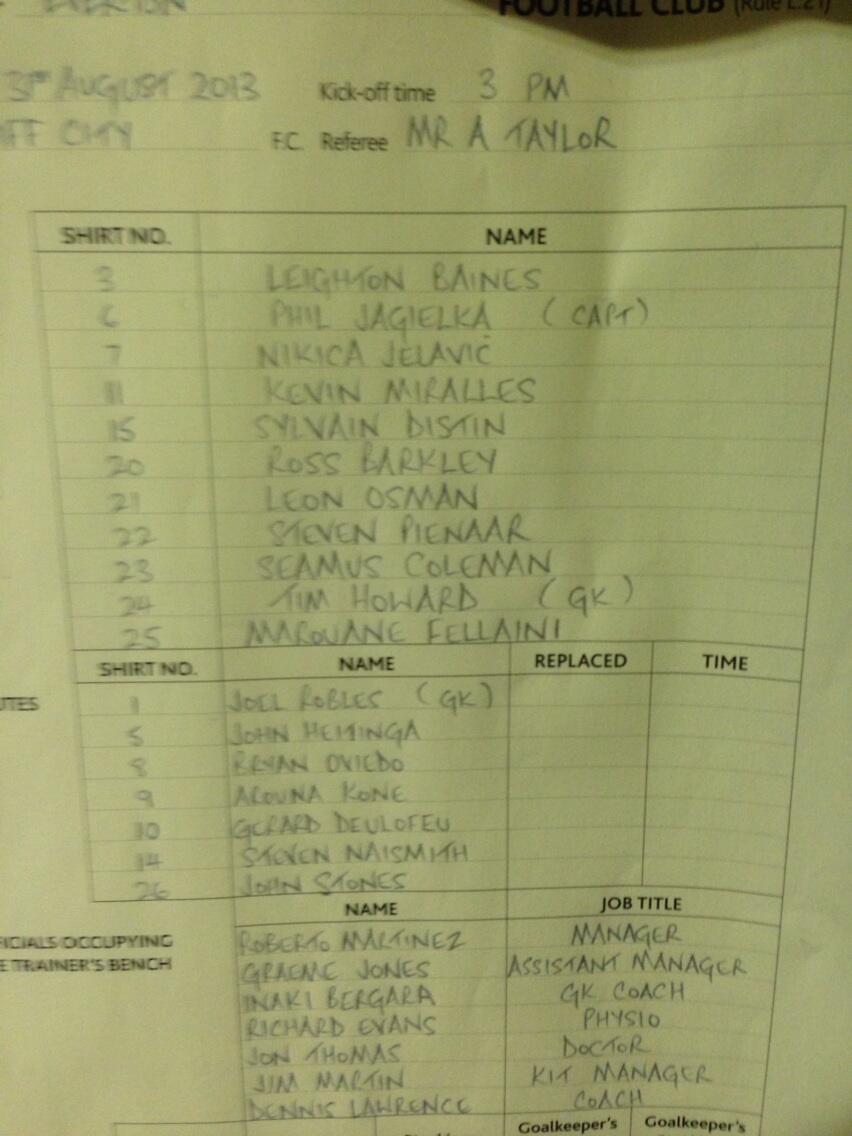 EVERTON FOOTBALL CLUB (Rule L.21)
31ST AUGUST 2013 Kick-off time 3 PM
FF CITY F.C. Referee MR A TAYLOR
SHIRT NO. NAME
3 LEIGHTON BAINES
6 PHIL JAGIELKA (CAPT)
7 NIKICA JELAVIC
11 KEVIN MIRALLES
15 SYLVAIN DISTIN
20 ROSS BARKLEY
21 LEON OSMAN
22 STEVEN PIENAAR
23 SEAMUS COLEMAN
24 TIM HOWARD (GK)
25 MAROUANE FELLAINI
SHIRT NO. NAME REPLACED TIME
UTES 1 JOEL ROBLES (GK)
5 JOHN HEITINGA
8 BRYAN OVIEDO
9 AROUNA KONE
10 GERARD DEULOFEU
14 STEVEN NAISMITH
26 JOHN STONES
NAME JOB TITLE
FICIALS OCCUPYING ROBERTO MARTINEZ MANAGER
E TRAINER'S BENCH GRAEME JONES ASSISTANT MANAGER
INAKI BERGARA GK COACH
RICHARD EVANS PHYSIO
JON THOMAS DOCTOR
JIM MARTIN KIT MANAGER
DENNIS LAWRENCE COACH
Goalkeeper's Goalkeeper's